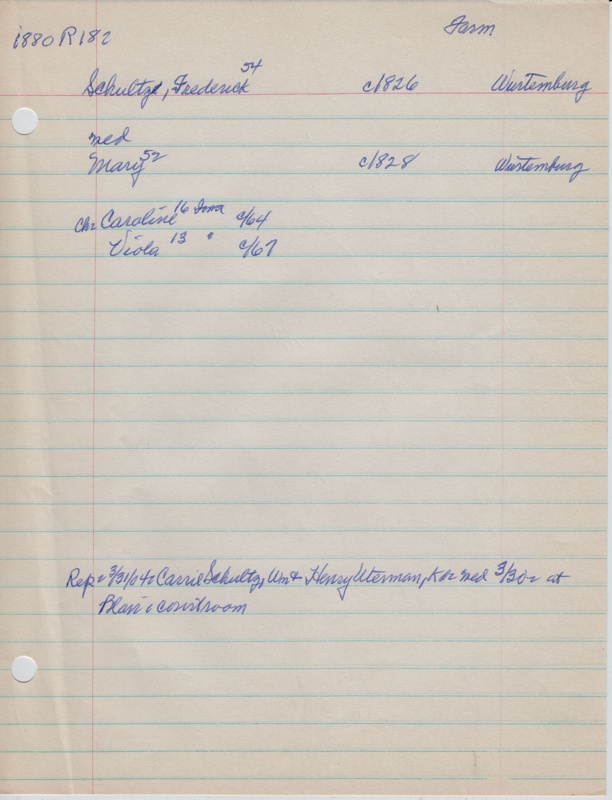 1880 R 182 Farm
Schultze, Frederick 54 c/1826 Wurtemburg
med
Mary 52 c/1828 Wurtemburg
ch- Caroline 16 Iowa c/64
Viola 13 " c/67
Rep- 3/31/04- Carrie Schultz, Wm & Henry Uterman, K or med 3/30- at
Blair courtroom